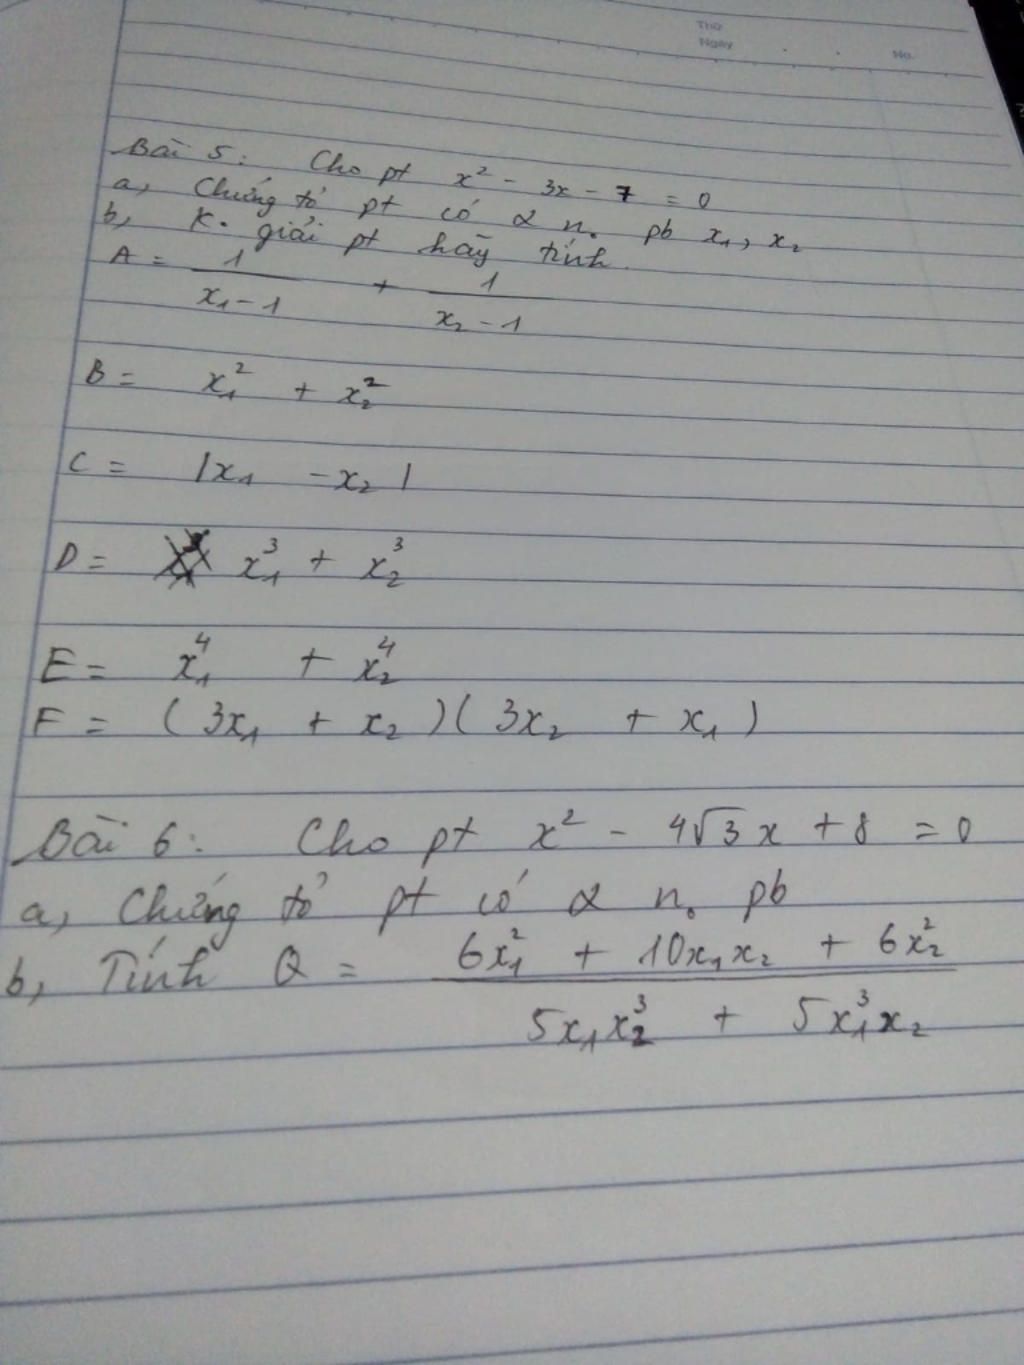 Thứ
Ngày No.
Bài 5: Cho pt x² - 3x - 7 = 0
a, Chứng tỏ pt có 2 n₀ pb x₁, x₂
b, K. giải pt hãy tính
A = 1/(x₁ - 1) + 1/(x₂ - 1)
B = x₁² + x₂²
C = |x₁ - x₂|
D = x₁³ + x₂³
E = x₁⁴ + x₂⁴
F = (3x₁ + x₂)(3x₂ + x₁)
Bài 6: Cho pt x² - 4√3x + 8 = 0
a, Chứng tỏ pt có 2 n₀ pb
b, Tính Q = (6x₁² + 10x₁x₂ + 6x₂²)/(5x₁x₂³ + 5x₁³x₂)